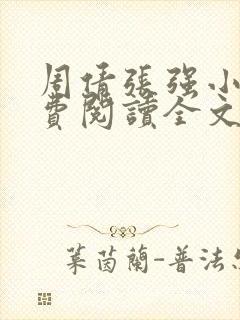 周倩張强小
費閱讀全文
葉茵蘭-普法